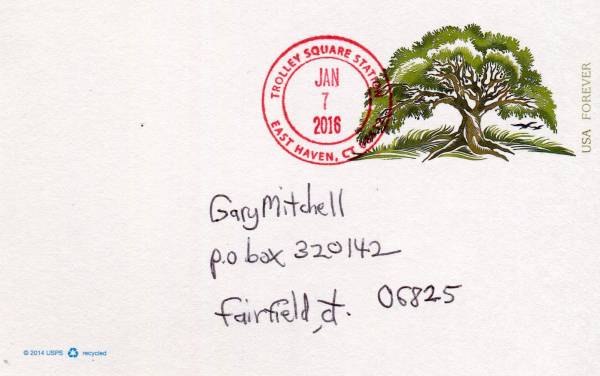 TROLLEY SQUARE STATION
JAN
7
2016
EAST HAVEN, CT
USA FOREVER
Gary Mitchell
p.o box 320142
fairfield, ct. 06825
© 2014 USPS recycled